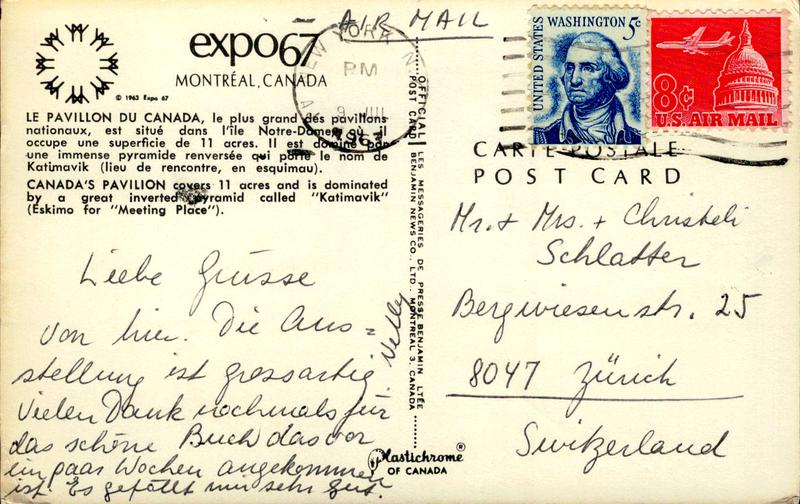 AIR MAIL
expo67
MONTRÉAL, CANADA
© 1963 Expo 67
LE PAVILLON DU CANADA, le plus grand des pavillons
nationaux, est situé dans l'île Notre-Dame, où il
occupe une superficie de 11 acres. Il est dominé par
une immense pyramide renversée qui porte le nom de
Katimavik (lieu de rencontre, en esquimau).
CANADA'S PAVILION covers 11 acres and is dominated
by a great inverted pyramid called "Katimavik"
(Eskimo for "Meeting Place").
NEW YORK N
PM
1967
UNITED STATES
WASHINGTON 5¢
8¢
U.S. AIR MAIL
CARTE POSTALE
POST CARD
OFFICIAL POST CARD
LES MESSAGERIES DE PRESSE BENJAMIN LTÉE
BENJAMIN NEWS CO., LTD., MONTREAL 3, CANADA
Plastichrome®
OF CANADA
Liebe Grüsse
von hier. Die Aus=
stellung ist grossartig.
Vielen Dank nochmals für
das schöne Buch das vor
ein paar Wochen angekommen
ist. Es gefällt mir sehr gut.
Nelly
Mr. + Mrs. + Christeli
Schlatter
Bergwiesenstr. 25
8047 Zürich
Switzerland